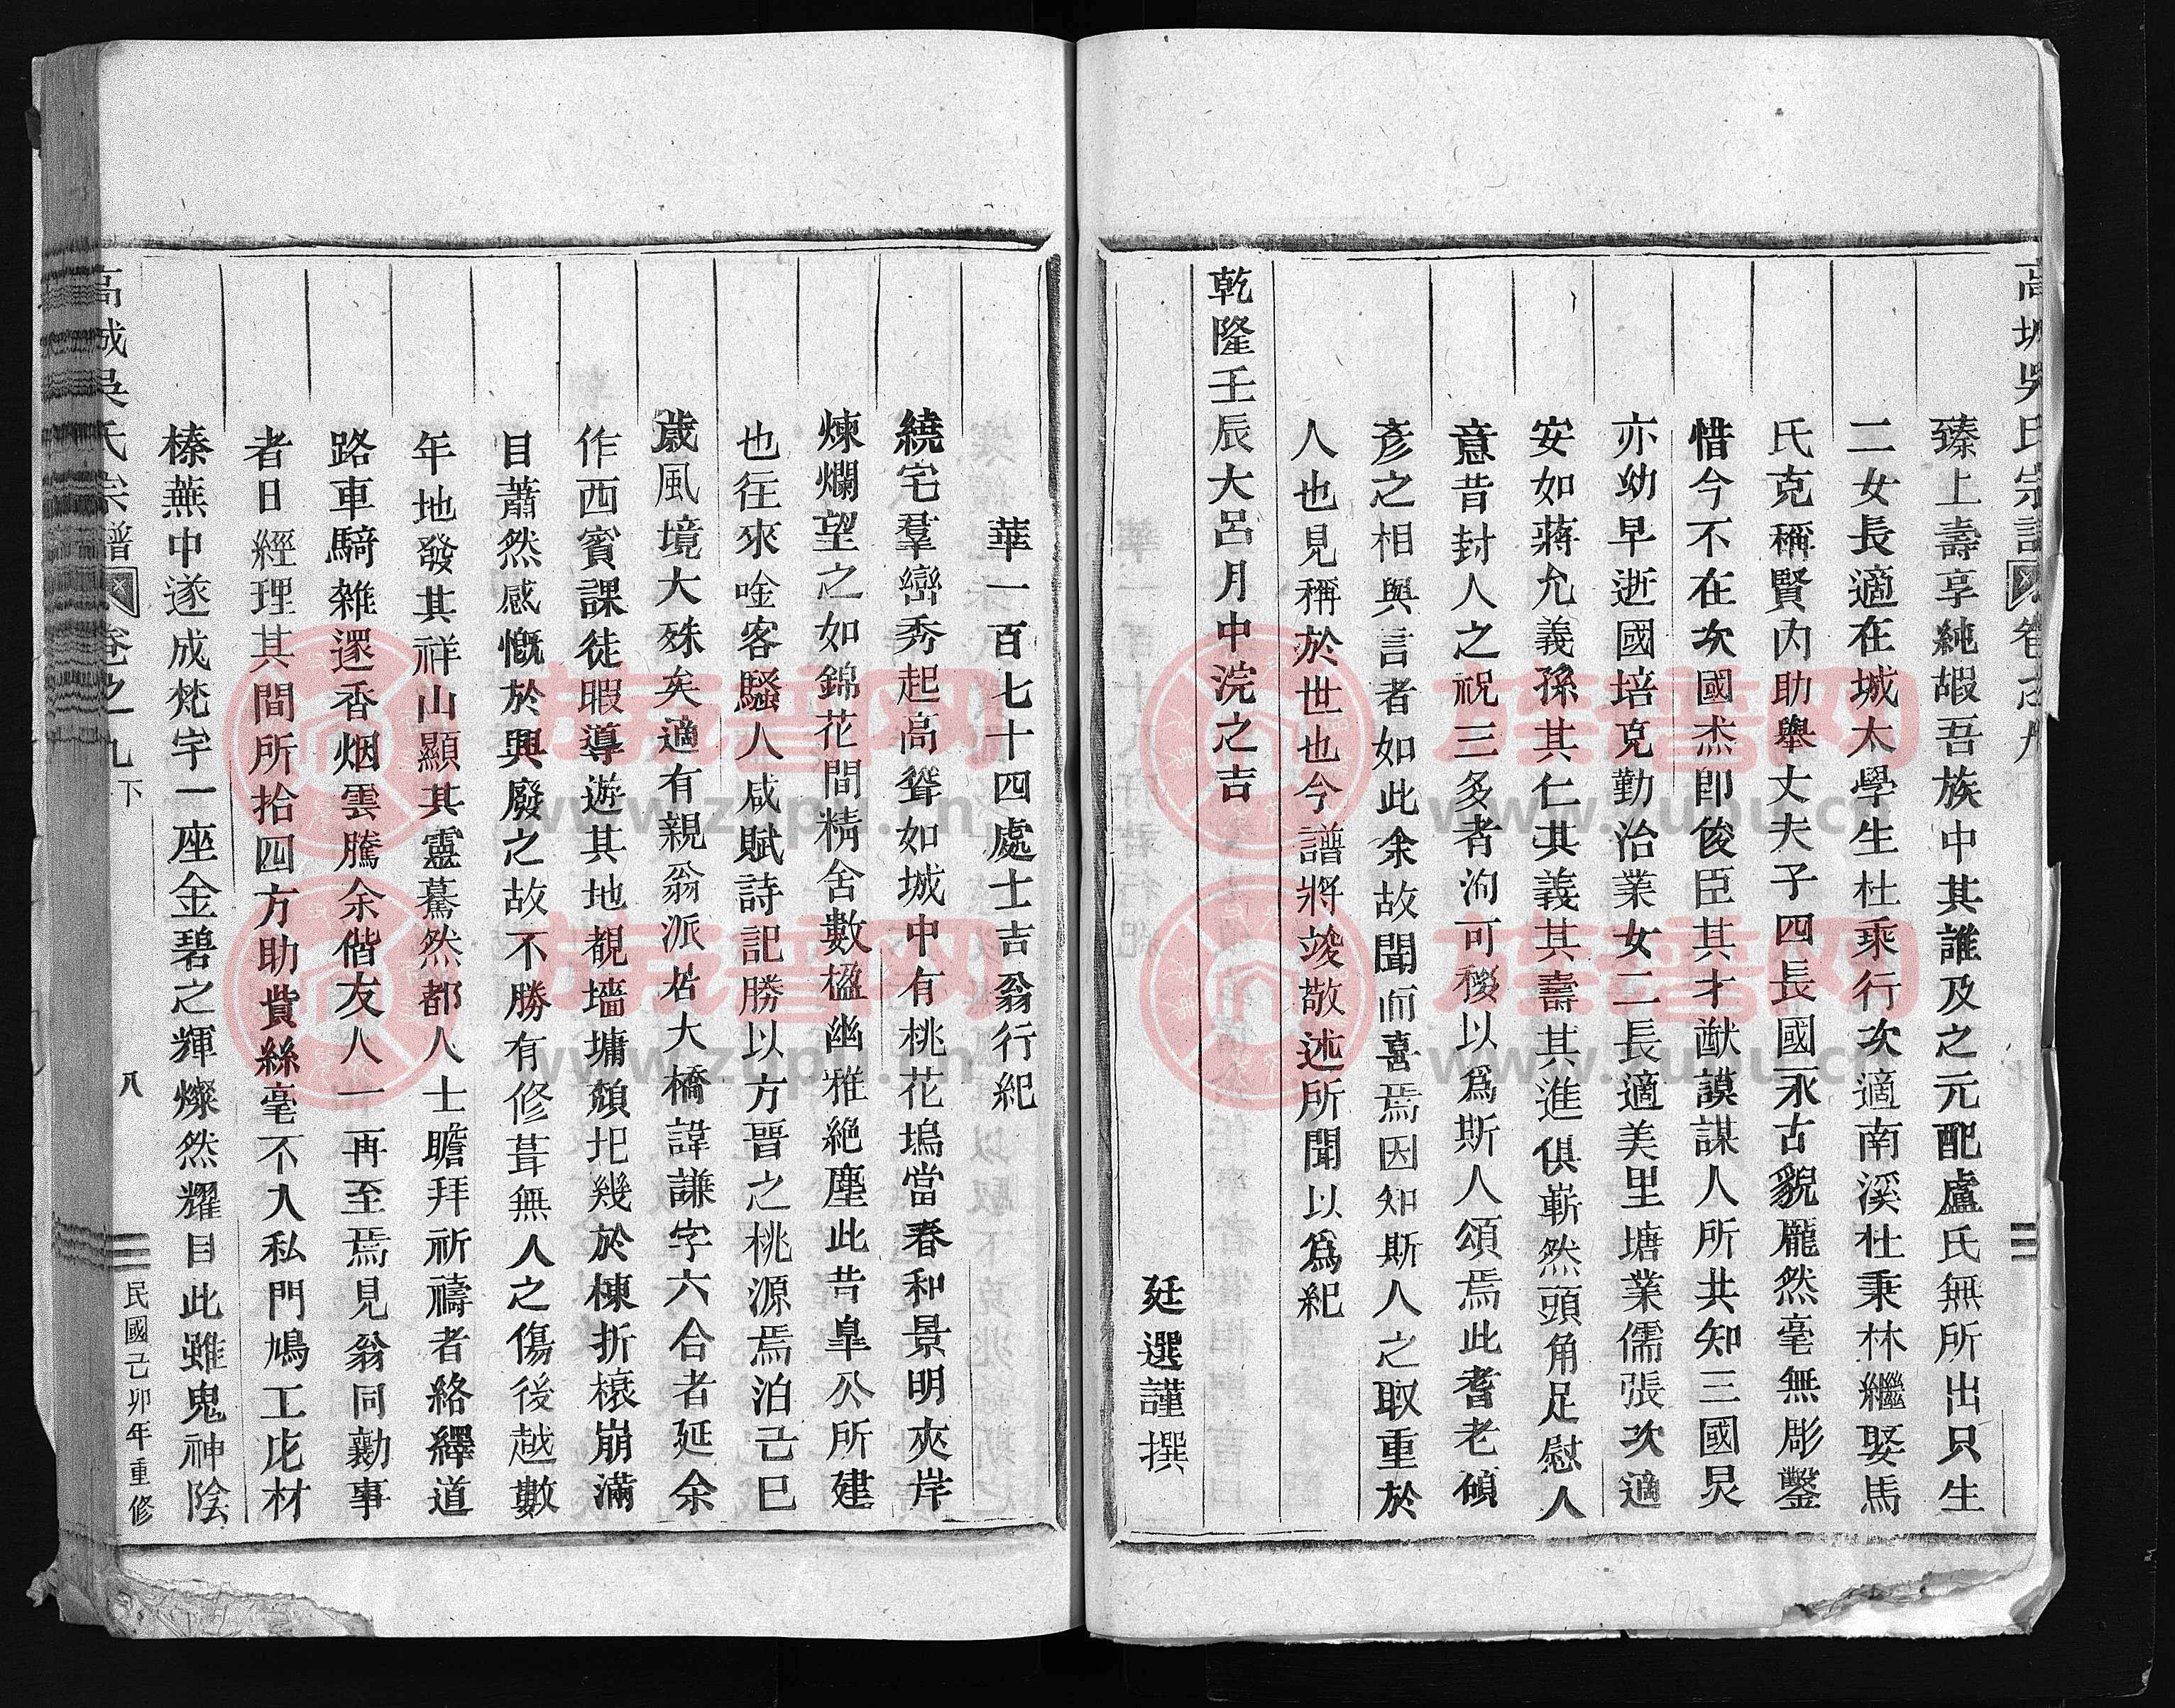 高城吳氏宗譜 卷之九
臻上壽享純嘏吾族中其誰及之元配盧氏無所出只生
二女長適在城太學生杜乘行次適南溪杜秉林繼娶馬
氏克稱賢內助舉丈夫子四長國永古貌龐然毫無彫鑿
惜今不在次國杰卽俊臣其才猷謨謀人所共知三國炅
亦幼早逝國培克勤治業女二長適美里塘業儒張次適
安如蔣允義孫其仁其義其壽其進俱嶄然頭角足慰人
意昔封人之祝三多者洵可移以爲斯人頌焉此耆老碩
彥之相與言者如此余故聞而喜焉因知斯人之取重於
人也見稱於世也今譜將竣敬述所聞以爲紀
乾隆壬辰大呂月中浣之吉
廷選謹撰
華一百七十四處士吉翁行紀
繞宅羣巒秀起高聳如城中有桃花塢當春和景明夾岸
煉爛望之如錦花間精舍數楹幽雅絶塵此昔皐公所建
也往來唫客騷人咸賦詩記勝以方晉之桃源焉洎己巳
歲風境大殊矣適有親翁派居大橋諱謙字六合者延余
作西賓課徒暇導遊其地覩墻墉頹圯幾於棟折榱崩滿
目蕭然感慨於興廢之故不勝有修葺無人之傷後越數
年地發其祥山顯其靈驀然都人士瞻拜祈禱者絡繹道
路車騎雜遝香烟雲騰余偕友人一再至焉見翁同勷事
者日經理其間所拾四方助貲絲毫不入私門鳩工庀材
榛蕪中遂成梵宇一座金碧之輝燦然耀目此雖鬼神陰
高城吳氏宗譜 卷之九 下 八 民國己卯年重修
族譜网
www.zupu.cn
族譜网
www.zupu.cn
族譜网
www.zupu.cn
族譜网
www.zupu.cn